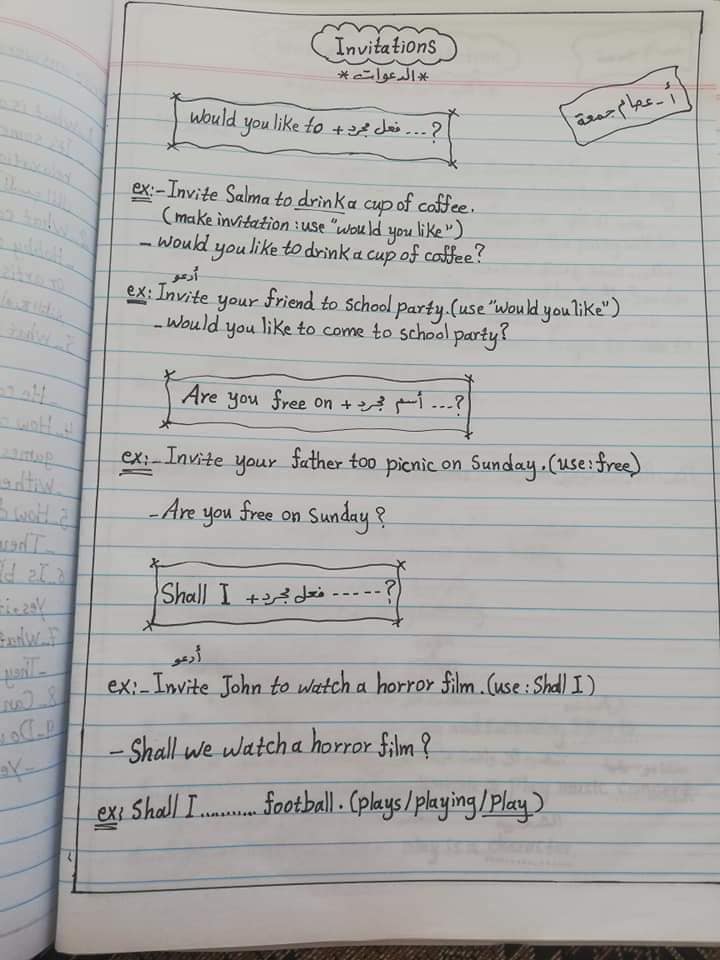 Invitations
*الدعوات*
أ- عصام جمعة
Would you like to + فعل مجرد ...?
ex:- Invite Salma to drink a cup of coffee.
(make invitation: use "would you like")
- would you like to drink a cup of coffee?
أدعو
ex: Invite your friend to school party. (use "would you like")
- would you like to come to school party?
Are you free on + أسم مجرد ...?
ex:- Invite your father too picnic on Sunday. (use: free)
- Are you free on Sunday?
Shall I + فعل مجرد -----?
أدعو
ex:- Invite John to watch a horror film. (use: Shall I)
- Shall we watch a horror film?
ex: Shall I .......... football. (plays/playing/play)